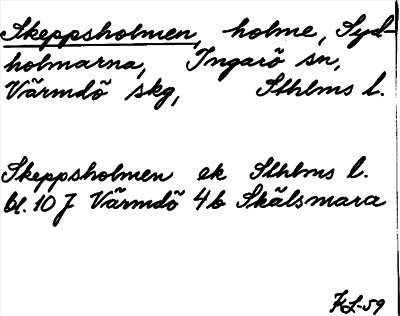 Skeppsholmen, holme, Syd-
holmarna, Ingarö sn,
Värmdö skg, Sthlms l.
Skeppsholmen ek Sthlms l.
bl. 10 J Värmdö 4b Skälsmara
HL-59